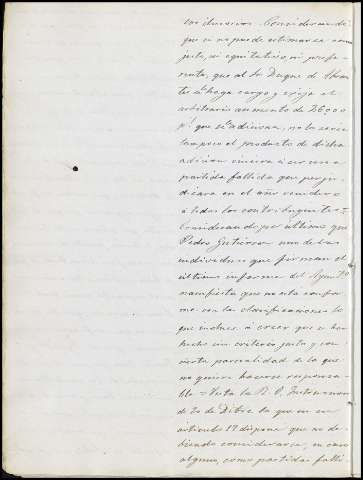 Considerando
que si no puede estimarse como
justo, ni equitativo ni proce-
dente, que al Sr Duque de
se le haga cargo y exija el
arbitrario aumento de 26000
que se le adiciona, no lo sería
tampoco el producto de dicha
adicion viniera á ser una
partida fallida que perju-
dicara en el año venidero
á todos los contribuyentes=
Considerando por ultimo que
Pedro Gutierrez uno de los
individuos que firman el
último informe del Aynto
manifiesta que no está confor-
me con las clasificaciones lo
que induce á creer que se han
hecho sin criterio justo y con
cierta parcialidad de la que
no quiere hacerse responsa-
ble = Vista la R. O. Instruccion
de 20 de Dibre la que en su
articulo 17 dispone que no de-
biendo considerarse, en caso
alguno, como partidas falli-